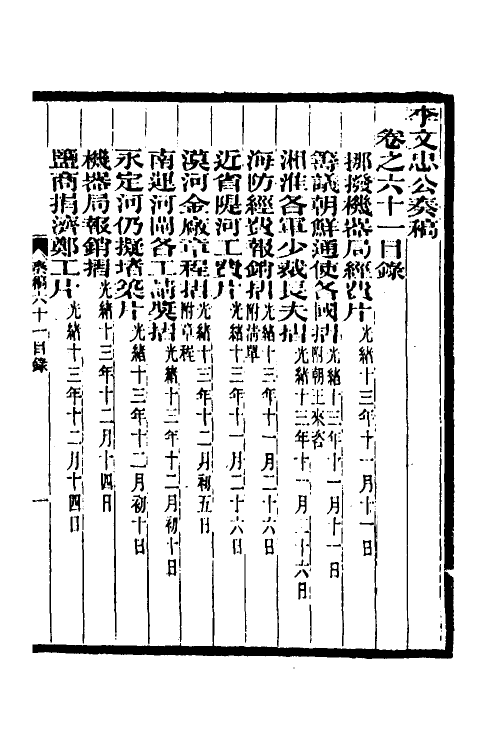 李文忠公奏稿
卷之六十一目錄
挪撥機器局經費片光緒十三年十一月十一日
籌議朝鮮通使各國摺附朝王來咨光緒十三年十一月十一日
湘淮各軍少裁長夫摺光緒十三年十一月二十六日
海防經費報銷摺附清單光緒十三年十一月二十六日
近省隄河工費片光緒十三年十一月二十六日
漠河金廠章程摺附章程光緒十三年十二月初五日
南運河閘各工請獎摺光緒十三年十二月初十日
永定河仍擬堵築片光緒十三年十二月初十日
機器局報銷摺光緒十三年十二月十四日
鹽商捐濟鄭工片光緒十三年十二月十四日
奏稿六十一目錄
一